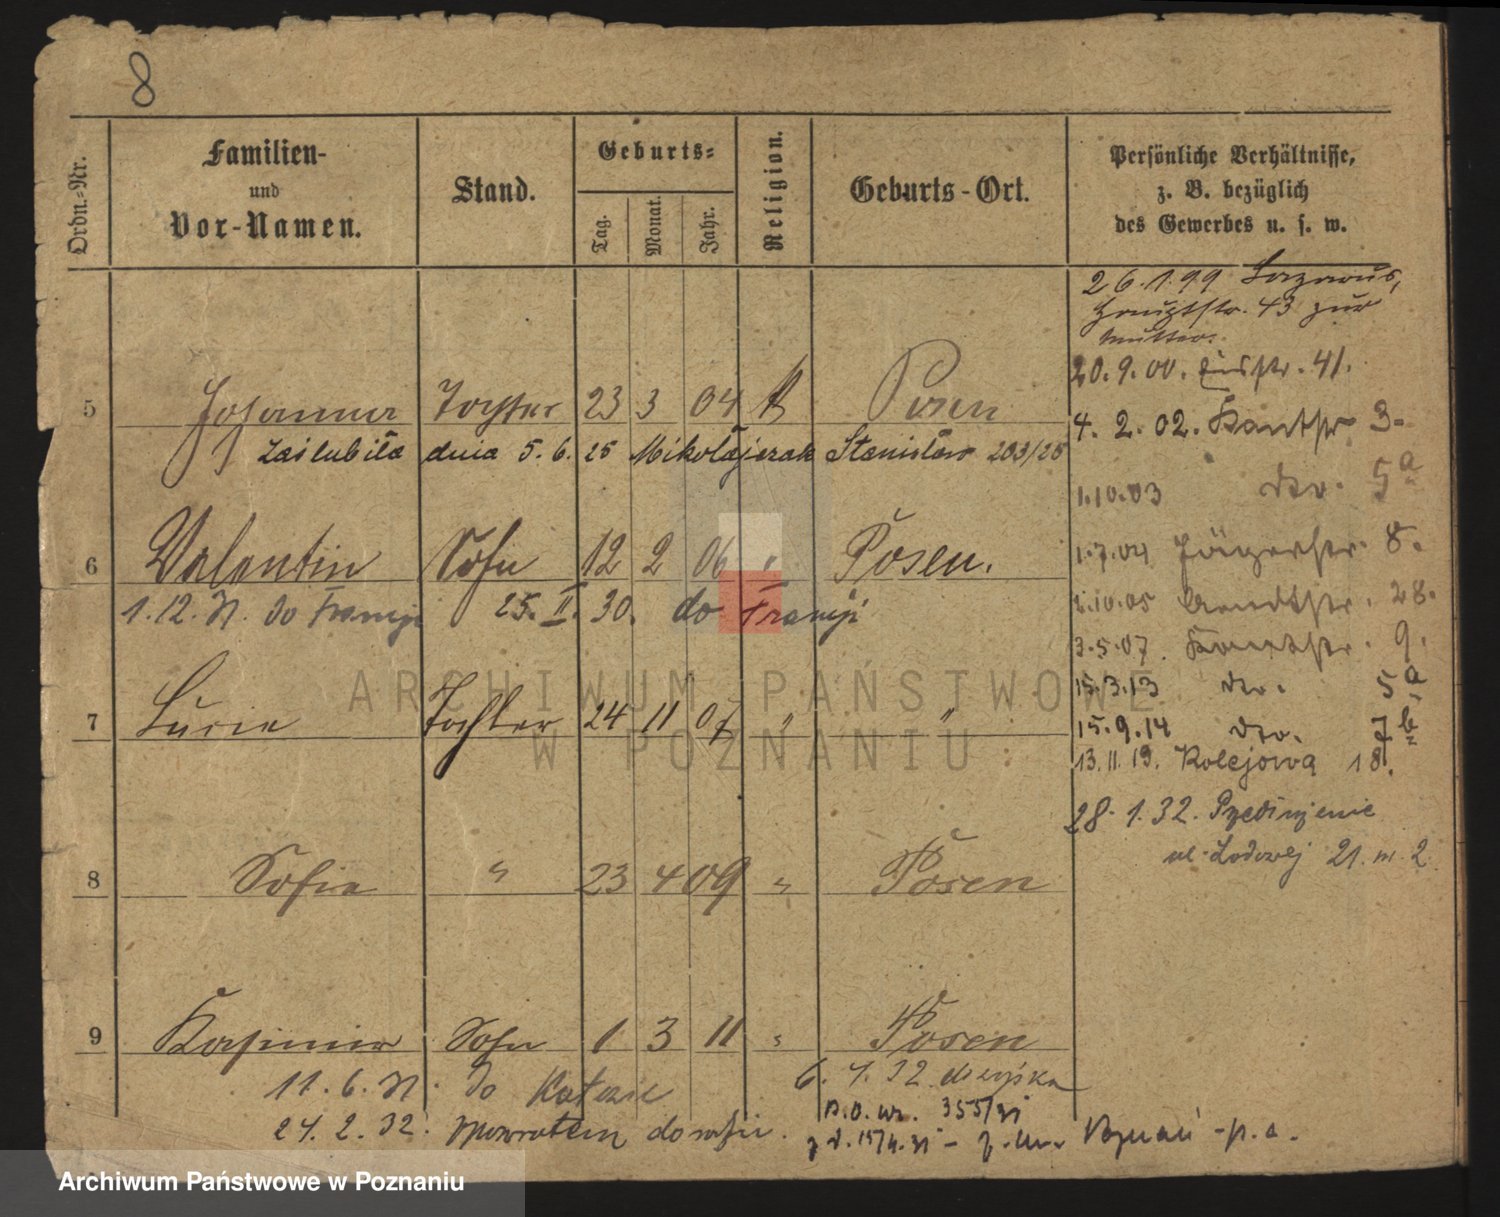 8
Ordn.-Nr.
Familien-
und
Vor-Namen.
Stand.
Geburts-
Tag.
Monat.
Jahr.
Religion.
Geburts-Ort.
Persönliche Verhältnisse,
z. B. bezüglich
des Gewerbes u. s. w.
26.1.99 Lazarus,
Hauptstr. 43 zur
Mutter.
20.9.00. 41.
5 Johanna Tochter 23 3 04 K Posen
4. 2. 02. Kantstr. 3.
Zaślubiła dnia 5. 6. 25 Mikołajczak Stanisław 203/25
1.10.03 5a
6 Valentin Sohn 12 2 06 " Posen.
1.7.04 Jägerstr. 8.
1.12. do Francji 25. II. 30. do Francji
1.10.05 Arndtstr. 28.
3.5.07. Kantstr. 9.
15.3.13 5a
7 Lucie Tochter 24 11 07 " "
15.9.14 7b
13.11.19. Kolejowa 18.
28. 1. 32.
ul. 21. m. 2
8 Sofie " 23 4 09 " Posen
9 Kasimir Sohn 1 3 11 " Posen
11. 6. 31. do
6. 1. 32 do wojska
355/31
24. 2. 32. do
Poznań - p. a.
ARCHIWUM PAŃSTWOWE
W POZNANIU
Archiwum Państwowe w Poznaniu